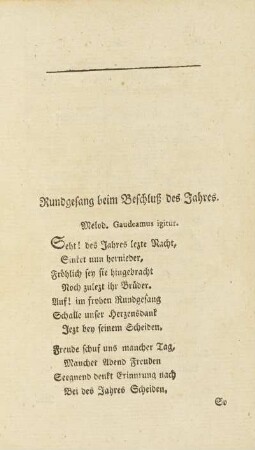 Rundgesang beim Beschluß des Jahres.
Melod. Gaudeamus igitur.
Seht! des Jahres lezte Nacht,
Sinket nun hernieder,
Fröhlich sey sie hingebracht
Noch zulezt ihr Brüder.
Auf! im frohen Rundgesang
Schalle unser Herzensdank
Jezt bey seinem Scheiden.
Freude schuf uns mancher Tag,
Mancher Abend Freuden
Seegnend denkt Erinnrung nach
Bei des Jahres Scheiden,
So